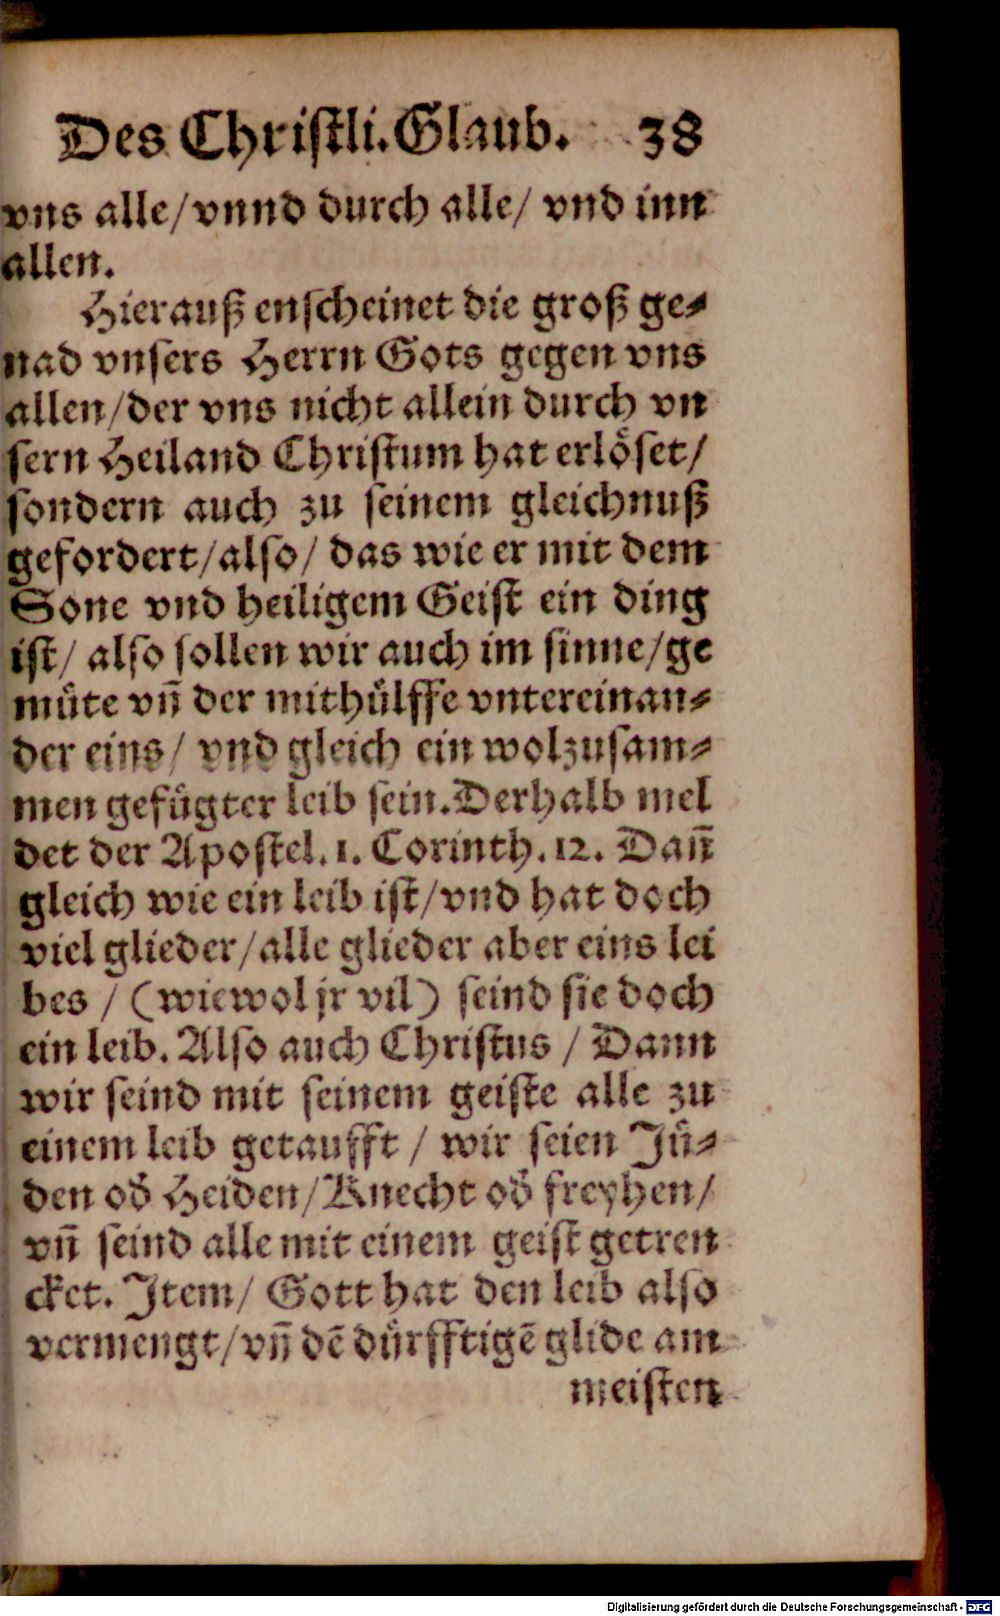 Des Christli. Glaub. 38
vns alle/ vnnd durch alle/ vnd inn
allen.
Hierauß enscheinet die groß ge⸗
nad vnsers Herrn Gots gegen vns
allen/ der vns nicht allein durch vn
sern Heiland Christum hat erlöset/
sondern auch zu seinem gleichnuß
gefordert/ also/ das wie er mit dem
Sone vnd heiligem Geist ein ding
ist/ also sollen wir auch im sinne/ ge
müte vñ der mithülffe vntereinan⸗
der eins/ vnd gleich ein wolzusam⸗
men gefügter leib sein. Derhalb mel
det der Apostel. 1. Corinth. 12. Dañ
gleich wie ein leib ist/ vnd hat doch
viel glieder/ alle glieder aber eins lei
bes / (wiewol jr vil) seind sie doch
ein leib. Also auch Christus / Dann
wir seind mit seinem geiste alle zu
einem leib getaufft / wir seien Jü⸗
den od̕ Heiden/ Knecht od̕ freyhen/
vñ seind alle mit einem geist getren
cket. Item/ Gott hat den leib also
vermengt/ vñ dē dürfftigē glide am
meisten
Digitalisierung gefördert durch die Deutsche Forschungsgemeinschaft - DFG